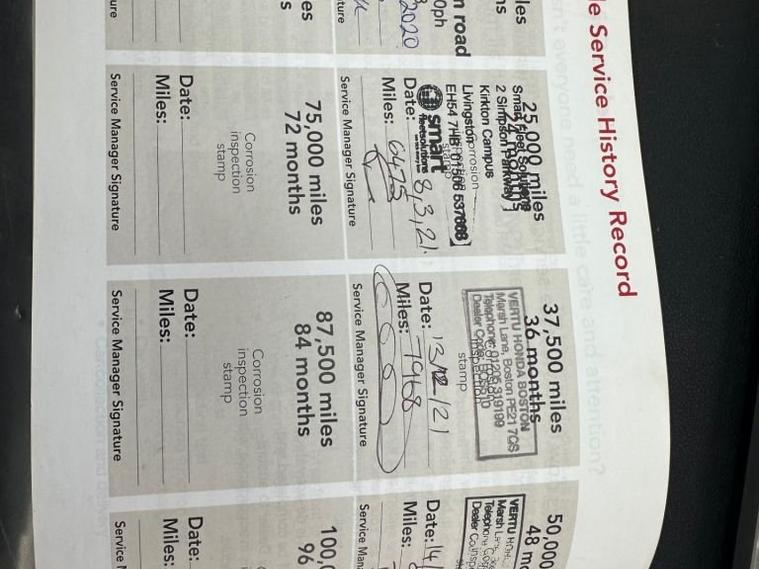 le Service History Record
les
ns
n road
0ph
2020
ture
25,000 miles
24 months
Smart Fleet Solutions
2 Simpson Parkway
Kirkton Campus
Livingston
EH54 7HB 01506 537668
Corrosion
inspection
stamp
smart
fleetsolutions
Date: 8,3,21.
Miles: 6475
Service Manager Signature
37,500 miles
36 months
VERTU HONDA BOSTON
Marsh Lane, Boston PE21 7QS
Telephone: 01205 319199
Dealer Code:
Corrosion
inspection
stamp
Date: 13/12/21
Miles: 7968
Service Manager Signature
50,000
48 mo
VERTU HON
Marsh La
Telephon
Dealer Co
Date: 14/
Miles:
Service Man
es
s
ure
75,000 miles
72 months
Corrosion
inspection
stamp
Date:
Miles:
Service Manager Signature
87,500 miles
84 months
Corrosion
inspection
stamp
Date:
Miles:
Service Manager Signature
100,0
96
Date:
Miles:
Service M